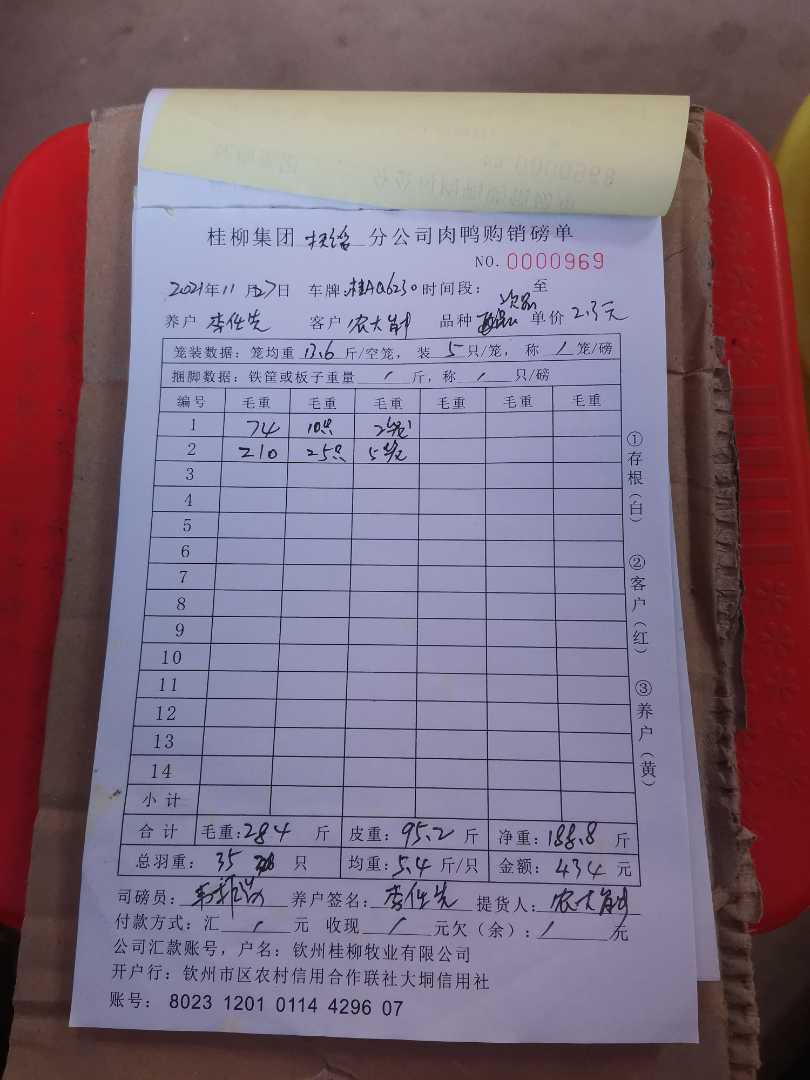 桂柳集团 分公司肉鸭购销磅单
NO. 0000969
2021年11月27日 车牌:桂AQ6230 时间段: 至
养户 李仕先 客户 农大 品种 次品 单价 2.3元
笼装数据: 笼均重 13.6 斤/空笼, 装 5 只/笼, 称 / 笼/磅
捆脚数据: 铁筐或板子重量 / 斤, 称 / 只/磅
编号 毛重 毛重 毛重 毛重 毛重 毛重
1 74 10只 2笼
2 210 25只 5笼
3
4
5
6
7
8
9
10
11
12
13
14
小计
合计 毛重:284 斤 皮重:95.2 斤 净重:188.8 斤
总羽重: 35 只 均重:5.4 斤/只 金额: 434 元
司磅员: 养户签名: 李仕先 提货人: 农大
付款方式: 汇 / 元 收现 / 元欠(余): / 元
公司汇款账号, 户名: 钦州桂柳牧业有限公司
开户行: 钦州市区农村信用合作联社大垌信用社
账号: 8023 1201 0114 4296 07
①存根(白)
②客户(红)
③养户(黄)